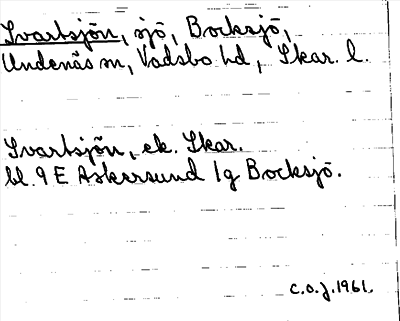 Svartsjön, sjö, Bocksjö,
Undenäs sn, Vadsbo hd, Skar. l.
Svartsjön, ek. Skar.
bl. 9 E Askersund 1g Bocksjö.
C.O.J. 1961.